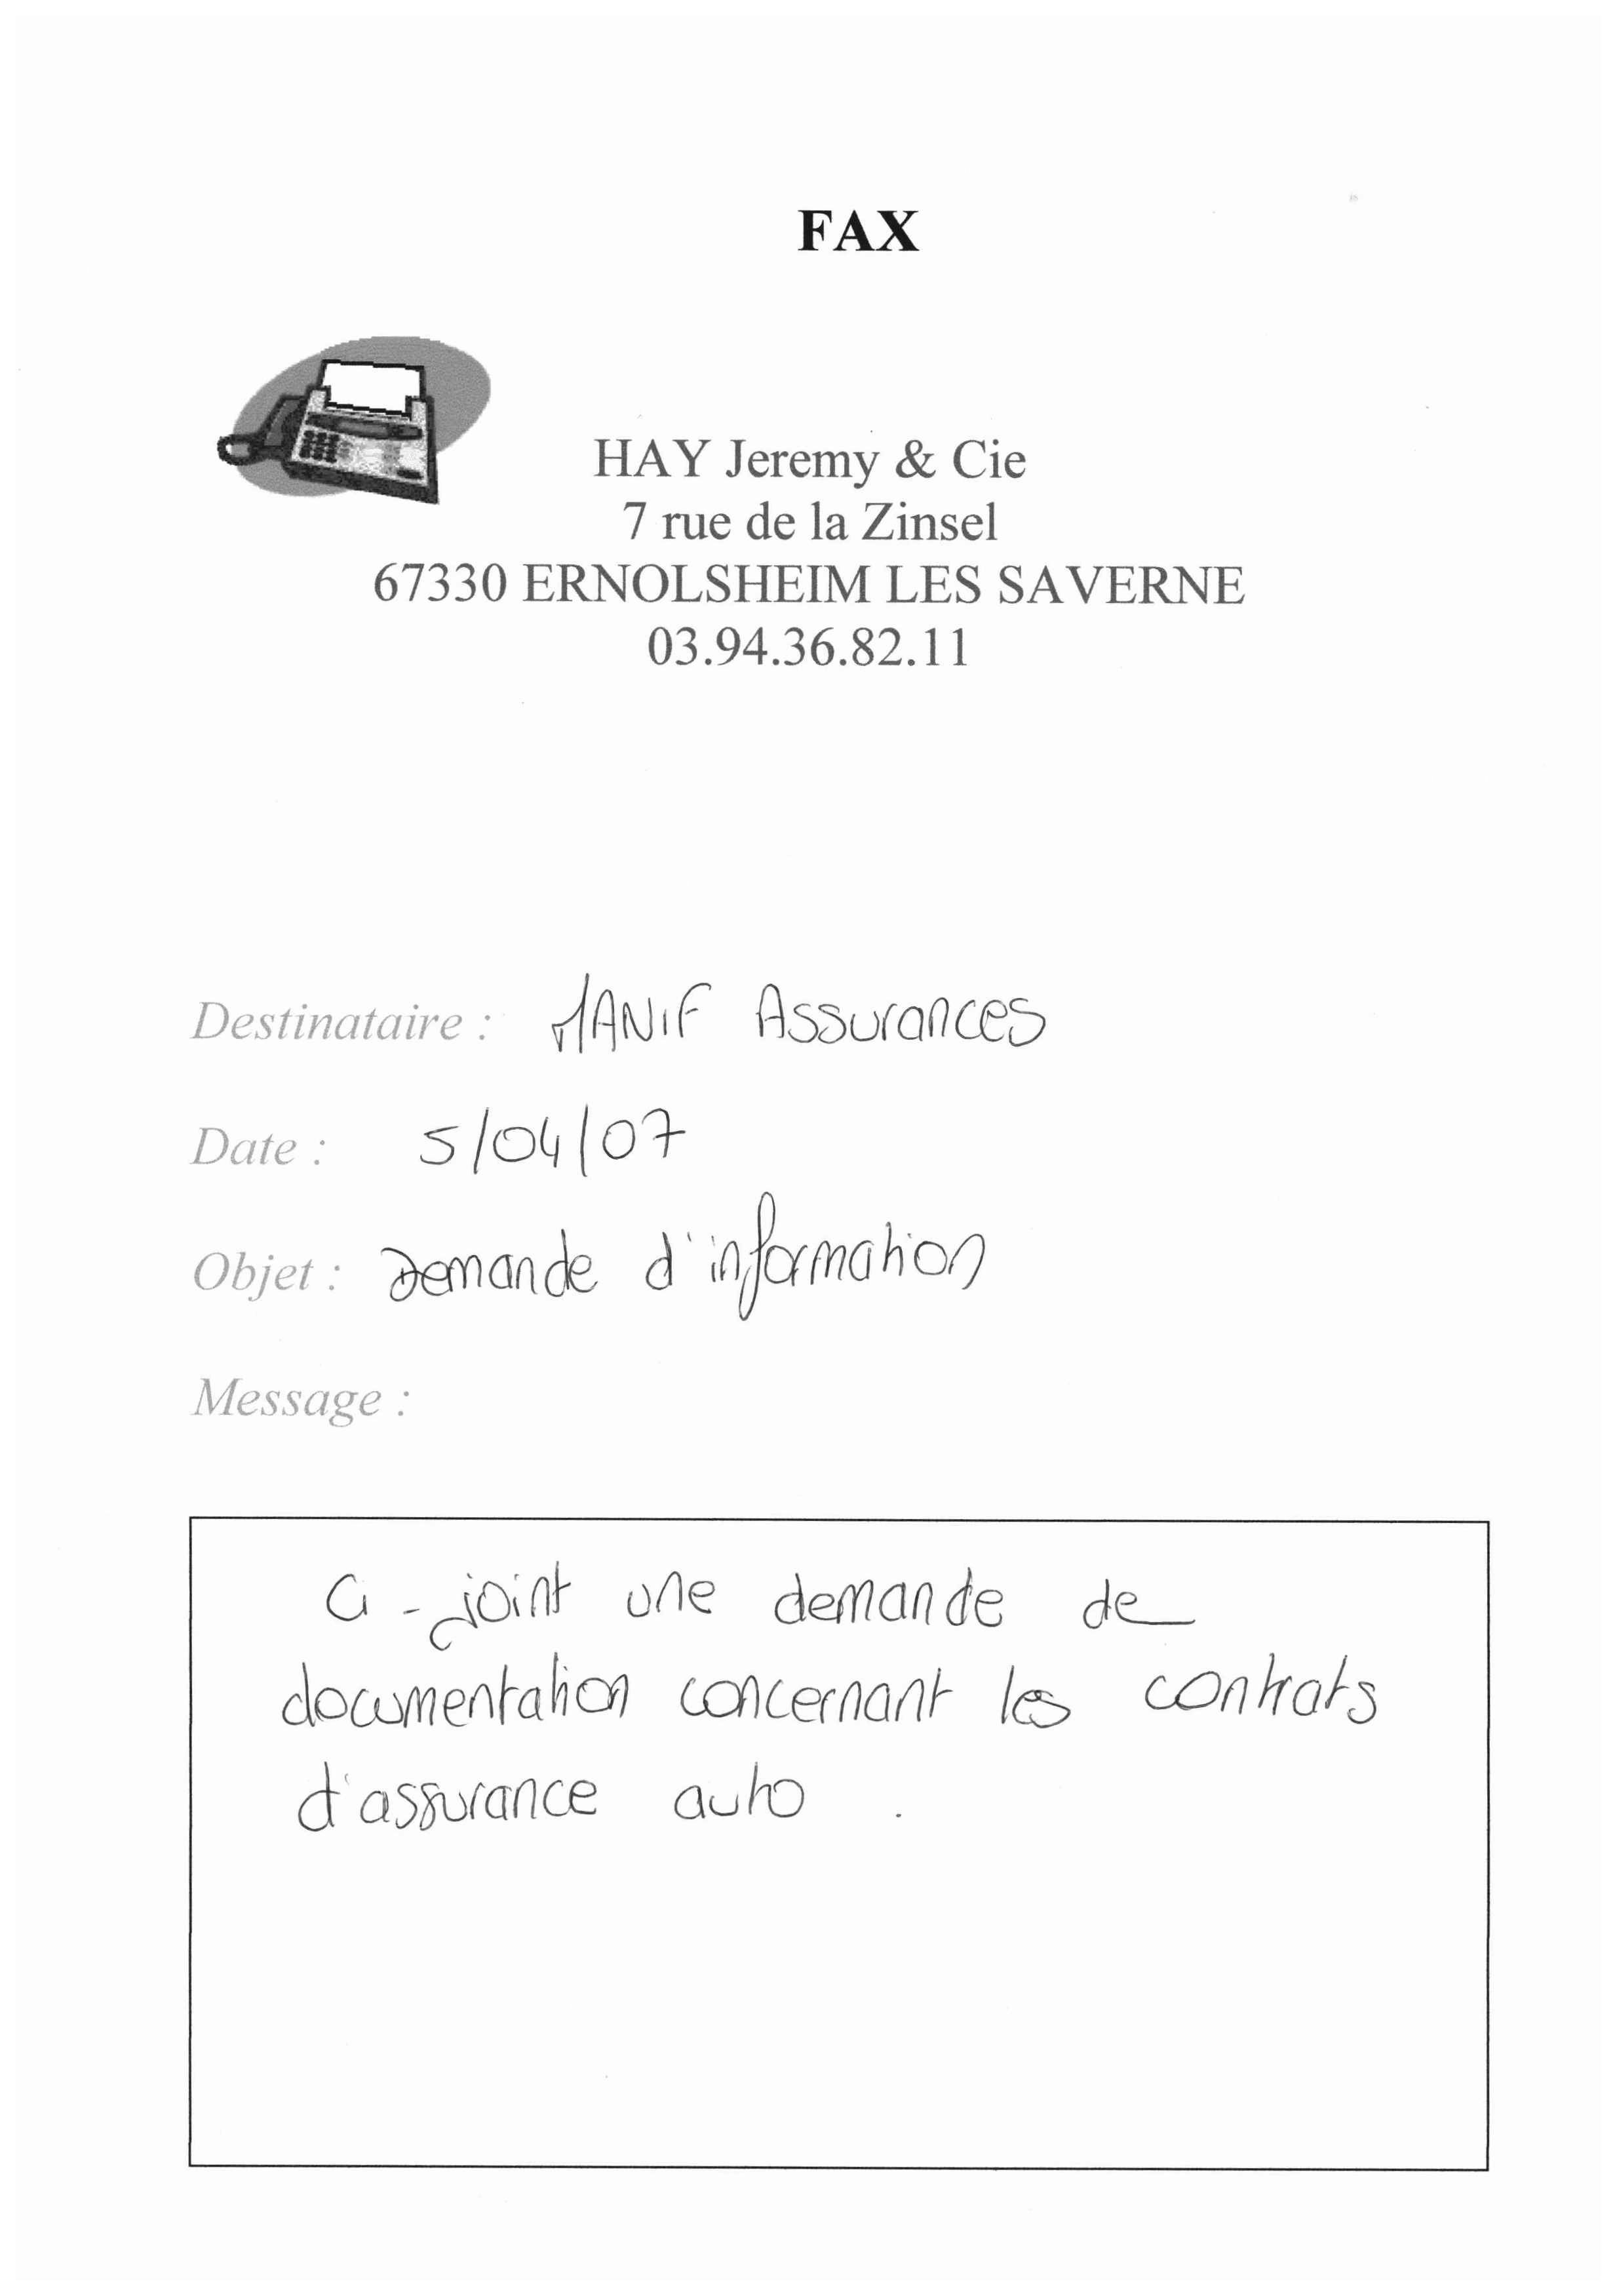 FAX
HAY Jeremy & Cie
7 rue de la Zinsel
67330 ERNOLSHEIM LES SAVERNE
03.94.36.82.11
Destinataire : MANIF Assurances
Date : 5/04/07
Objet : Demande d'information
Message :
Ci-joint une demande de
documentation concernant les contrats
d'assurance auto .